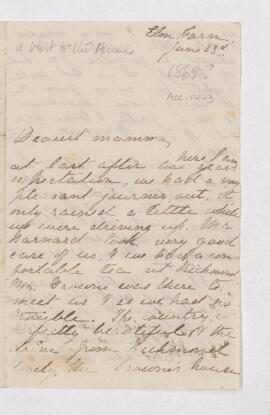 Elm Farm
June 23rd
a visit to the
1869?
Acc.
Dearest mamma,
here I am
at last after two years
expectation, we had a very
pleasant journey out, it
only rained a little while
we were driving up. Mr
Barnard took very good
care of us. I we had a com
fortable tea at Richmond
Mrs. Browne was there to
meet us & so we had no
trouble. The country is
perfectly beautiful & the
drive from Richmond
lovely, the Brownes house